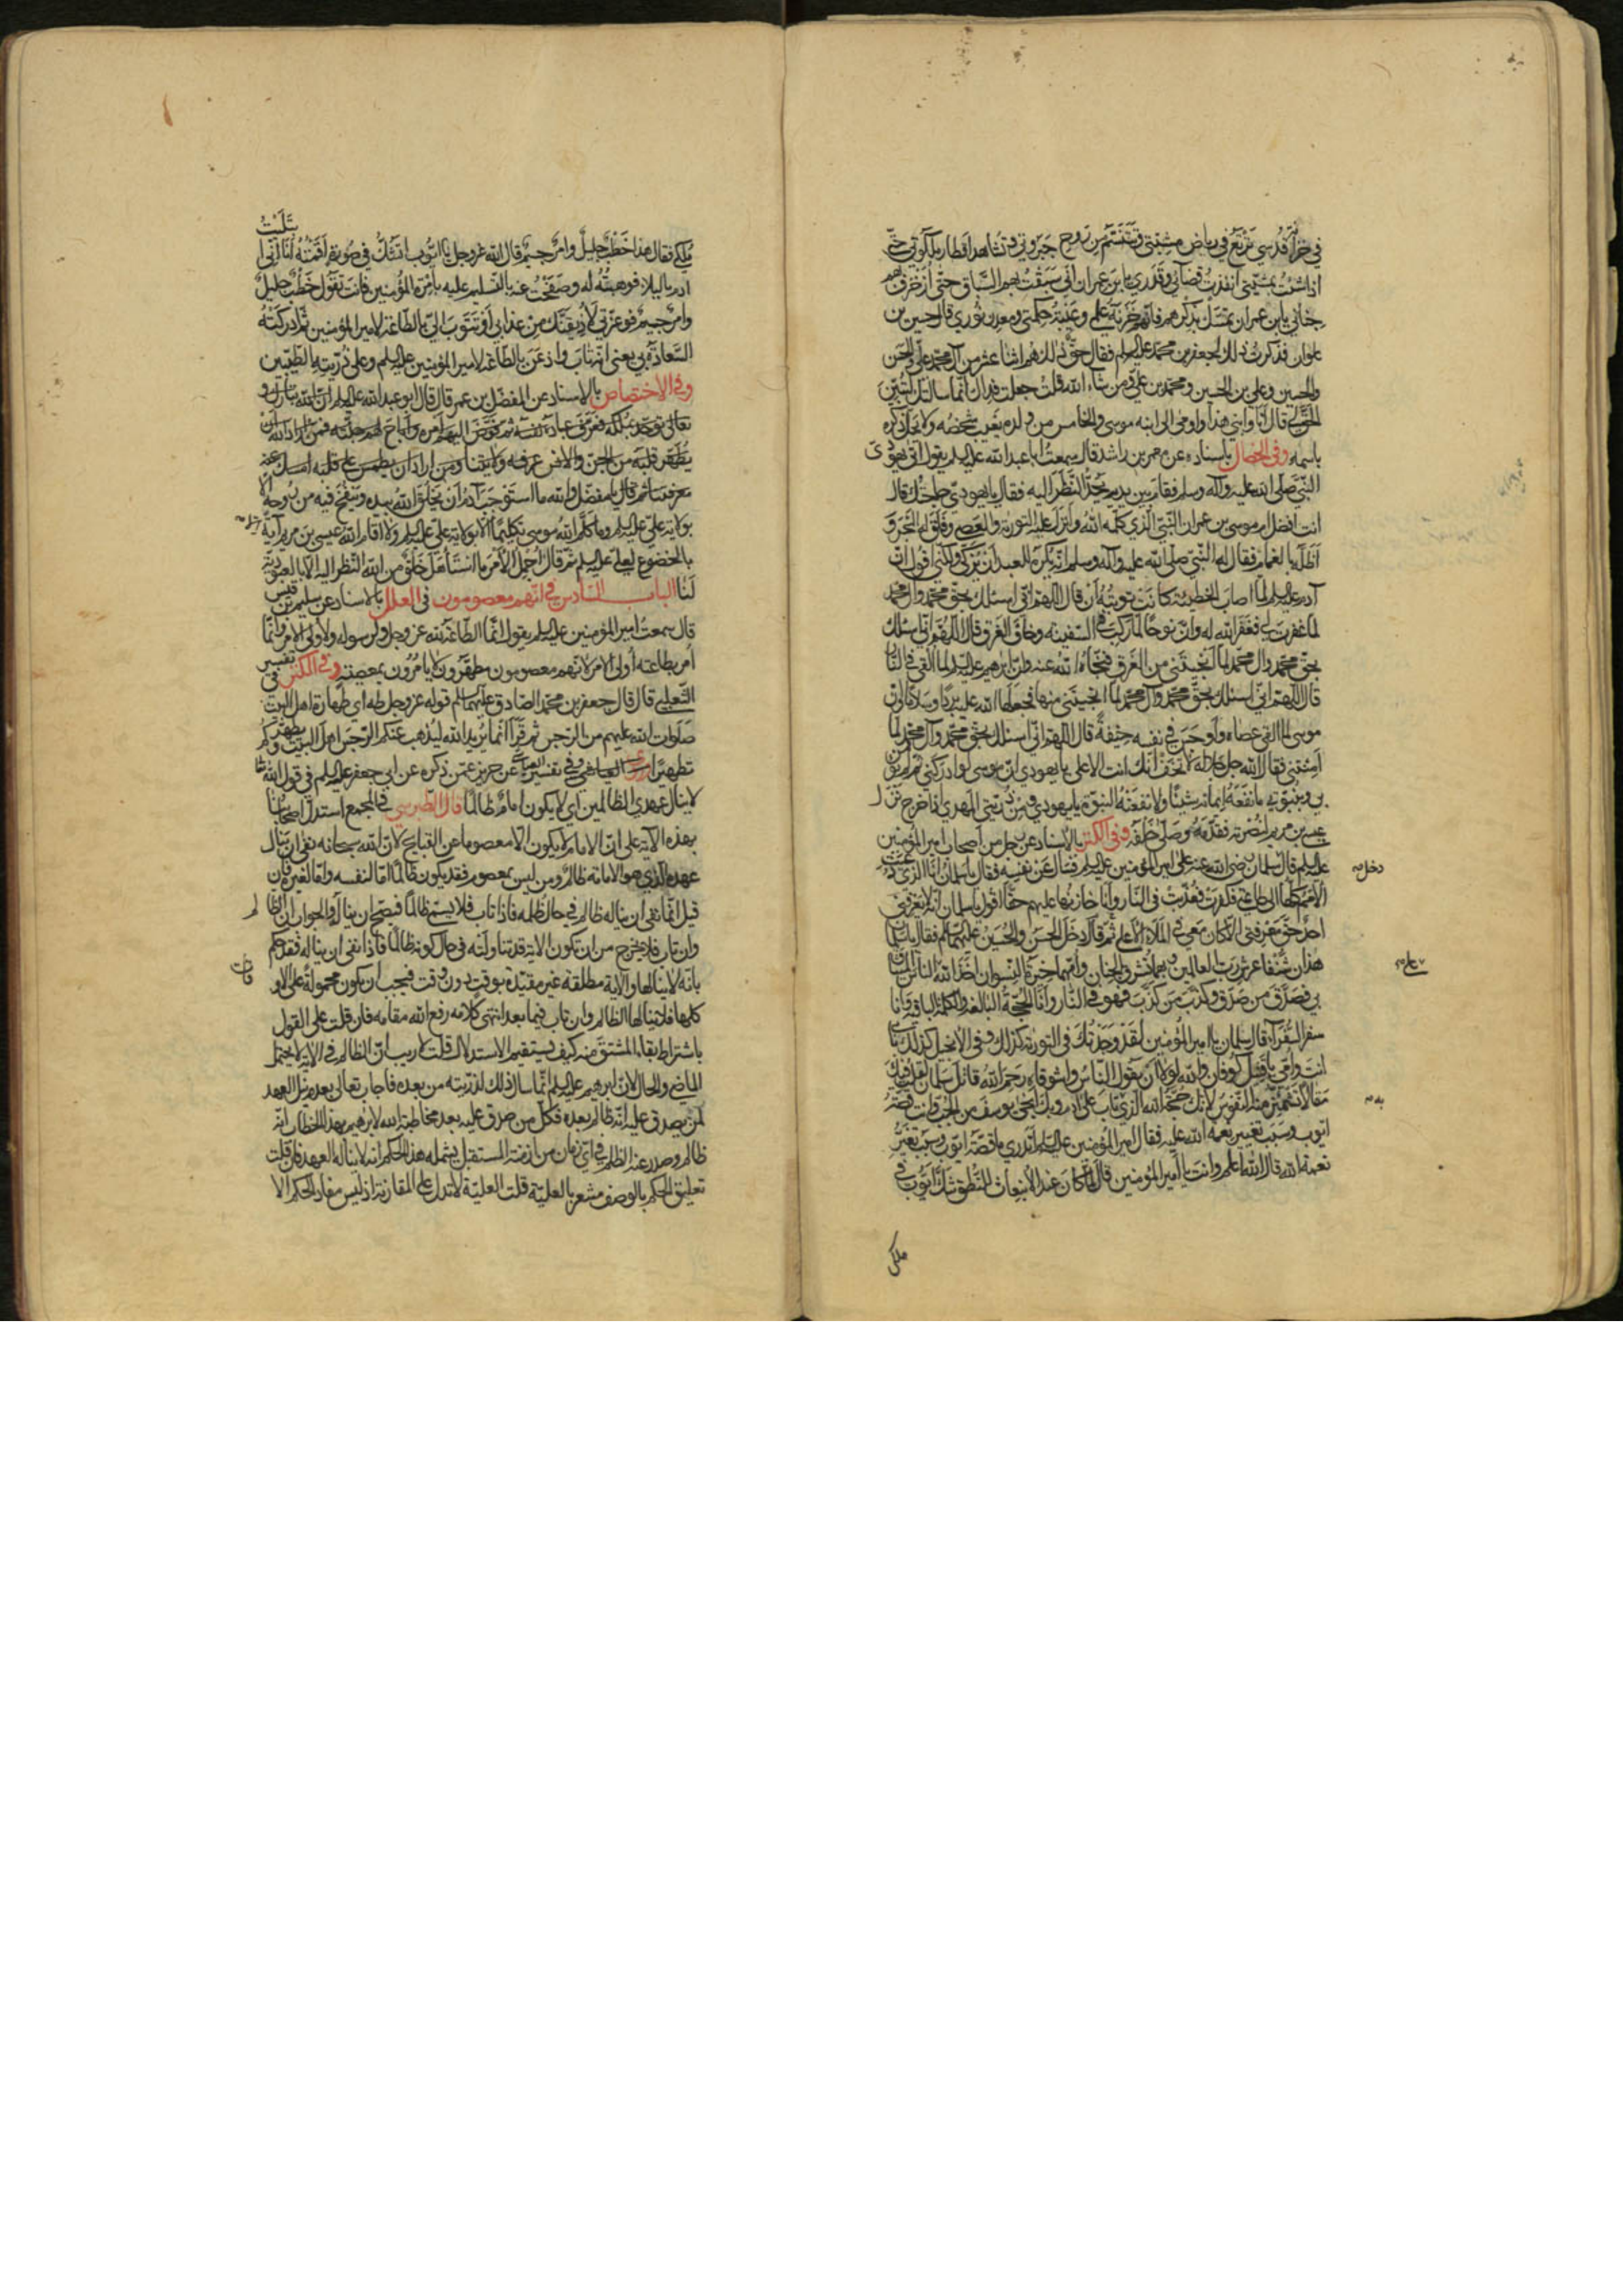 في حزائر قدسي ترتع في رياض مشيتي وتتنسم من روح جبروتي وتشاهد اقطار ملكوتي حتى
اذا شئت بمشيتي انفذت قضائي وقدري يا بن عمران اني سبقت بهم السباق حتى ازخرف بهم
جناني يا بن عمران تمسك بذكرهم فانهم خزنة علمي وعيبة حكمتي ومعدن نوري قال حسين بن
علوان فذكرت ذلك لجعفر بن محمد عليه السلم فقال حق ذلك هم اثنا عشر من آل محمد علي والحسن
والحسين وعلي بن الحسين ومحمد بن علي ومن شاء الله قلت جعلت فداك انما سالتك لتبين
الحق لي قال انا وابني هذا واومى الى ابنه موسى والخامس من ولده يغيب شخصه ولا يحل ذكره
باسمه وفي الخصال باسناده عن معمر بن راشد قال سمعت ابا عبد الله عليه السلم يقول اتى يهودي
النبي صلى الله عليه وآله وسلم فقام بين يديه يحد النظر اليه فقال يا يهودي حاجتك قال
انت افضل ام موسى بن عمران النبي الذي كلمه الله وانزل عليه التورية والعصى وفلق له البحر و
اظله بالغمام فقال له النبي صلى الله عليه وآله وسلم انه يكره للعبد ان يزكي ولكني اقول ان
آدم عليه السلم لما اصاب الخطيئة كانت توبته ان قال اللهم اني اسئلك بحق محمد وال محمد
لما غفرت لي فغفر الله له وان نوحا لما ركب في السفينة وخاف الغرق قال اللهم اني اسئلك
بحق محمد وال محمد لما انجيتني من الغرق فنجاه الله عنه وان ابرهيم عليه السلم لما القي في النار
قال اللهم اني اسئلك بحق محمد وآل محمد لما انجيتني منها فجعلها الله عليه بردا وسلاما وان
موسى لما القى عصاه واوجس في نفسه خيفة قال اللهم اني اسئلك بحق محمد وآل محمد لما
امنتني فقال الله جل جلاله لا تخف انك انت الاعلى يا يهودي ان موسى لو ادركني ثم لم يؤمن
بي وبنبوتي ما نفعه ايمانه شيئا ولا نفعته النبوة يا يهودي ومن ذريتي المهدي اذا خرج نزل
عيسى بن مريم لنصرته فقدمه وصلى خلفه وفي الكنز بالاسناد عن رجل من اصحاب امير المؤمنين
عليه السلم قال سلمان رضي الله عنه على امير المؤمنين عليه السلم فسال عن نفسه فقال يا سلمان انا الذي دعيت
دخل
الامم كلها الى طاعتي فكفرت فعذبت في النار وانا خازنها عليهم حقا اقول يا سلمان انه لا يعرفني
احد حق معرفتي الا كان معي في الملاء الاعلى ثم قال دخل الحسن والحسين عليهما السلم فقال يا سلمان
هذان شنفا عرش رب العالمين وبهما تشرق الجنان وامهما خيرة النسوان اخذ الله الناس الميثاق
بي فصدق من صدق وكذب من كذب فهو في النار وانا الحجة البالغة والكلمة الباقية وانا
سفير السفراء قال سلمان يا امير المؤمنين لقد وجدتك في التورية كذلك وفي الانجيل كذلك بابي
انت وامي يا قتيل كوفان والله لولا ان يقول الناس واشوقاه رحم الله قاتل سلمان لقلت فيك
مقالا تشمئز منه النفوس لانك حجة الله الذي تاب على ادم وبك انجى يوسف من الجب وانت قصة
ايوب وسبب تغيير نعمة الله عليه فقال امير المؤمنين عليه السلم اتدري ما قصة ايوب وسبب تغير
نعمة الله قال الله اعلم وانت يا امير المؤمنين قال لما كان عند الانبعاث للنطق شك ايوب في
ملكي
بتلبث
ملكي فقال هذا خطب جليل وامر جسيم قال الله عز وجل يا ايوب اتشك في صورة اقمته انا اني ا
ادم بالبلاء فوهبته له وصفحت عنه بالتسليم عليه بامرة المؤمنين فانت تقول خطب جليل
وامر جسيم فوعزتي لاذيقنك من عذابي او تتوب الي بالطاعة لامير المؤمنين ثم ادركته
السعادة بي يعني انه تاب واذعن بالطاعة لامير المؤمنين عليه السلم وعلى ذريته الطيبين
وفي الاختصاص بالاسناد عن المفضل بن عمر قال قال ابو عبد الله عليه السلم ان الله تبارك و
تعالى توحد بملكه فعرف عباده نفسه ثم فوض اليهم امره واباح لهم جنته فمن اراد الله ان
يطهر قلبه من الجن والانس عرفه ولايتنا ومن اراد ان يطمس على قلبه امسك عنه
معرفتنا ثم قال يا مفضل والله ما استوجب آدم ان يخلقه الله بيده وينفخ فيه من روحه الا
بولاية علي عليه السلم وما كلم الله موسى تكليما الا بولاية علي عليه السلم ولا اقام الله عيسى بن مريم آية
بالخضوع لعلي عليه السلم ثم قال اجمل الامر ما استاهل خلق من الله النظر اليه الا بالعبودية
لنا الباب السادس في انهم معصومون في العلل بالاسناد عن سليم بن قيس
قال سمعت امير المؤمنين عليه السلم يقول انما الطاعة لله عز وجل ولرسوله ولاولي الامر وانما
امر بطاعة اولي الامر لانهم معصومون مطهرون لا يامرون بمعصيته وفي الكنز في تفسير
الثعلبي قال قال جعفر بن محمد الصادق عليهما السلم قوله عز وجل طه اي طهارة اهل البيت
صلوات الله عليهم من الرجس ثم قرأ انما يريد الله ليذهب عنكم الرجس اهل البيت ويطهركم
تطهيرا وفي تفسير العياشي عن حريز عمن ذكره عن ابي جعفر عليه السلم في قول الله تعالى
لا ينال عهدي الظالمين اي لا يكون اماما ظالما قال الطبرسي في المجمع استدل اصحابنا
بهذه الآية على ان الامام لا يكون الا معصوما عن القبايح لان الله سبحانه نفى ان ينال
عهده الذي هو الامامة ظالم ومن ليس بمعصوم فقد يكون ظالما اما لنفسه واما لغيره فان
قيل انما نفى ان يناله ظالم في حال ظلمه فاذا تاب فلا يسمى ظالما فيصح ان يناله والجواب ان الظالم
وان تاب فلا يخرج من ان تكون الاية قد تناولته في حال كونه ظالما فاذا نفى ان يناله فقد حكم
بانه لا ينالها والآية مطلقة غير مقيدة بوقت دون وقت فيجب ان يكون محمولة على الاوقات
كلها فلا ينالها الظالم وان تاب فيما بعد انتهى كلامه رفع الله مقامه فان قلت على القول
باشتراط بقاء المشتق منه كيف يستقيم الاستدلال قلت لا ريب ان الظالم في الاية لا يحتمل
الماضي والحال لان ابرهيم عليه السلم انما سال ذلك لذريته من بعده فاجاب تعالى بعدم نيل العهد
لمن يصدق عليه انه ظالم بعده فكل من صدق عليه بعد مخاطبة الله لابرهيم بهذا الخطاب انه
ظالم وصدر عنه الظلم في اي زمان من ازمنة المستقبل يشمله هذا الحكم انه لا يناله العهد فان قلت
تعليق الحكم بالوصف مشعر بالعلية قلت العلية لا تدل على المقارنة اذ ليس مفاد الحكم الا